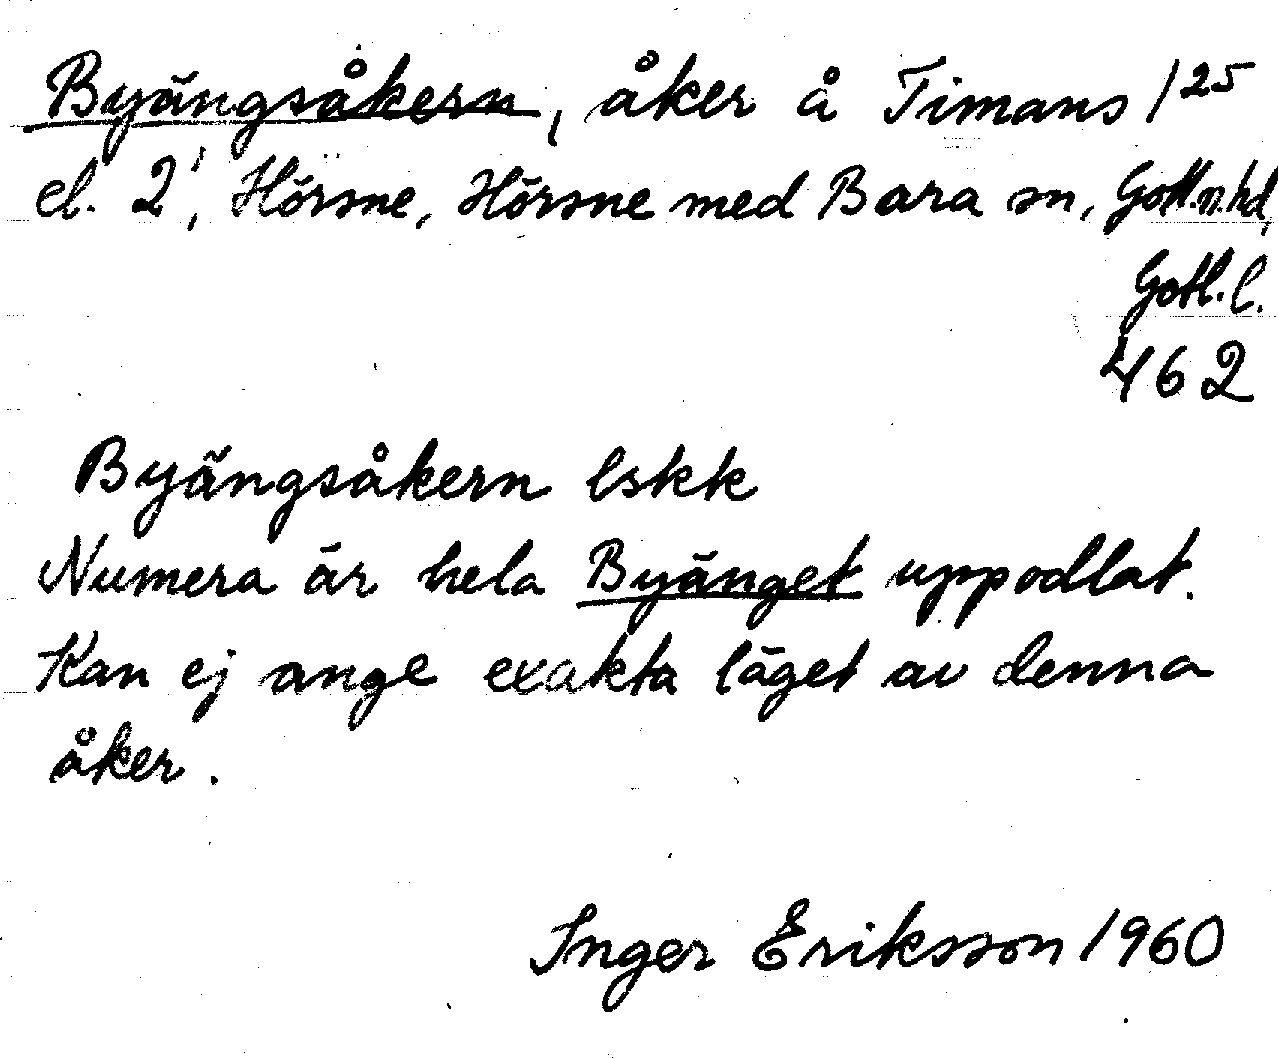 Byängsåkern, åker å Timans 1²⁵
el. 2¹, Hörsne, Hörsne med Bara sn, Gotl.n.hd,
Gotl. l.
462
Byängsåkern lskk
Numera är hela Byänget uppodlat.
Kan ej ange exakta läget av denna
åker.
Inger Eriksson 1960